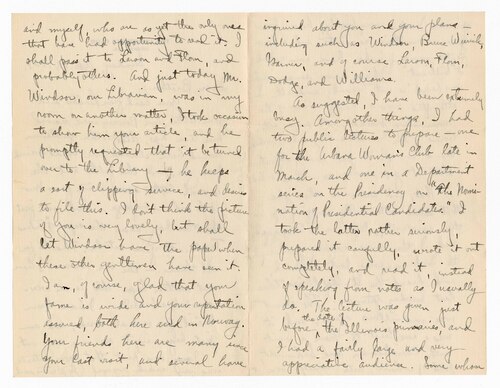 and myself, who are as yet the only ones
that have had opportunity to read it. I
shall pass it to Larson and Flom, and
probably others. And just today Mr.
Windsor, our Librarian, was in my
room on another matter, I took occasion
to show him your article, and he
promptly requested that it be turned
over to the Library — he keeps
a sort of clipping service, and desires
to file this. I don't think the picture
of you is very lovely, but shall
let Windsor have the paper when
these other gentlemen have seen it.
I am, of course, glad that your
fame is wide and your reputation
assured, both here and in Norway.
Your friends here are many since
your last visit, and several have
inquired about you and your plans —
including such as Windsor, Bruce
and of course Larson, Flom,
Dodge, and Williams.
As suggested, I have been extremely
busy. Among other things, I had
two public lectures to prepare — one
for the Urbana Woman's Club late in
March, and one in a Department
series on the Presidency on "The Nomi-
nation of Presidential Candidates." I
took the latter rather seriously,
prepared it carefully, wrote it out
completely, and read it, instead
of speaking from notes as I usually
do. The lecture was given just
before the date of the Illinois primaries, and
I had a fairly large and very
appreciative audience. Some whom